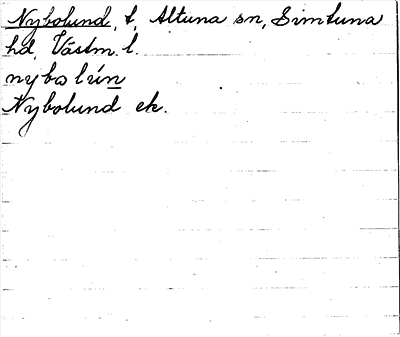 Nybolund, t, Altuna sn, Simtuna
hd, Västm. l.
nybolún
Nybolund ek.